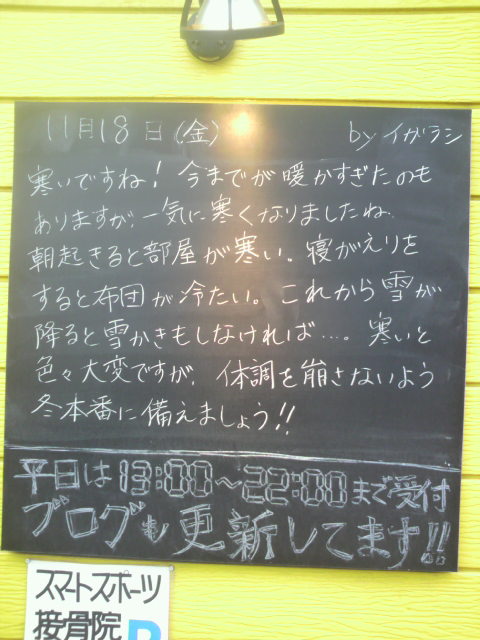 11月18日(金) by イガラシ
寒いですね！今までが暖かすぎたのも
ありますが、一気に寒くなりましたね。
朝起きると部屋が寒い。寝がえりを
すると布団が冷たい。これから雪が
降ると雪かきもしなければ…。寒いと
色々大変ですが、体調を崩さないよう
冬本番に備えましょう!!
平日は13:00〜22:00まで受付
ブログも更新してます!!
スマートスポーツ
接骨院 P